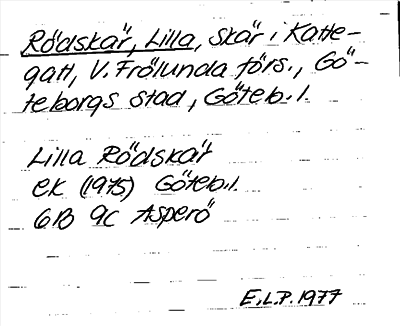 Rödskär, Lilla, skär i Katte-
gatt, V. Frölunda förs., Gö-
teborgs stad, Göteb. l.
Lilla Rödskär
ek (1975) Göteb.l.
6B 9c Asperö
E.L.P. 1977